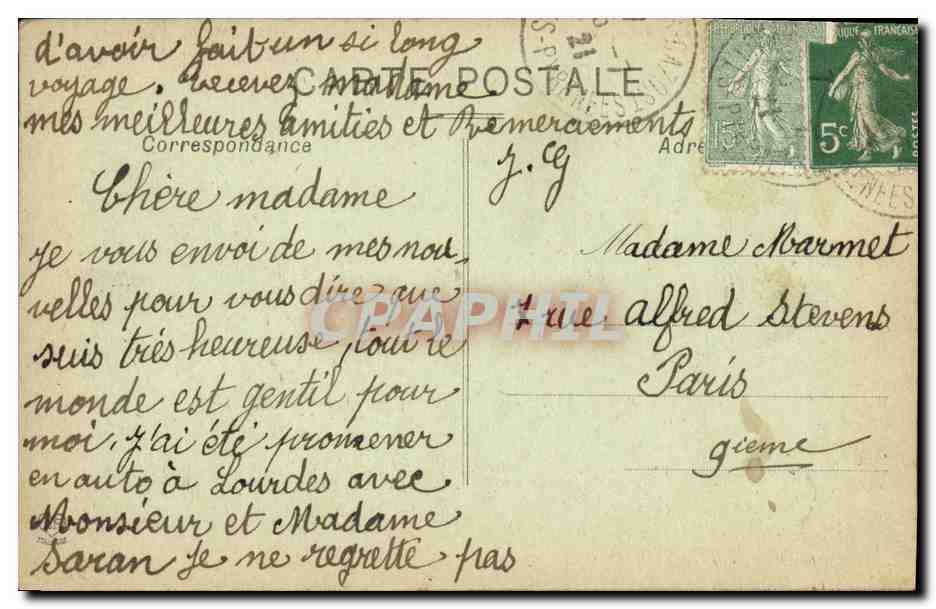 d'avoir fait un si long
voyage. recevez madame.
mes meilleures amitiés et Remerciements
J. G
CARTE POSTALE
Correspondance
Chère madame
je vous envoi de mes nou
velles pour vous dire que
suis très heureuse, tout le
monde est gentil pour
moi, j'ai été promener
en auto à Lourdes avec
Monsieur et Madame
Saran je ne regrette pas
Madame Marmet
7 rue Alfred Stevens
Paris
9ieme
15c
5c
POSTES
CPAPHIL